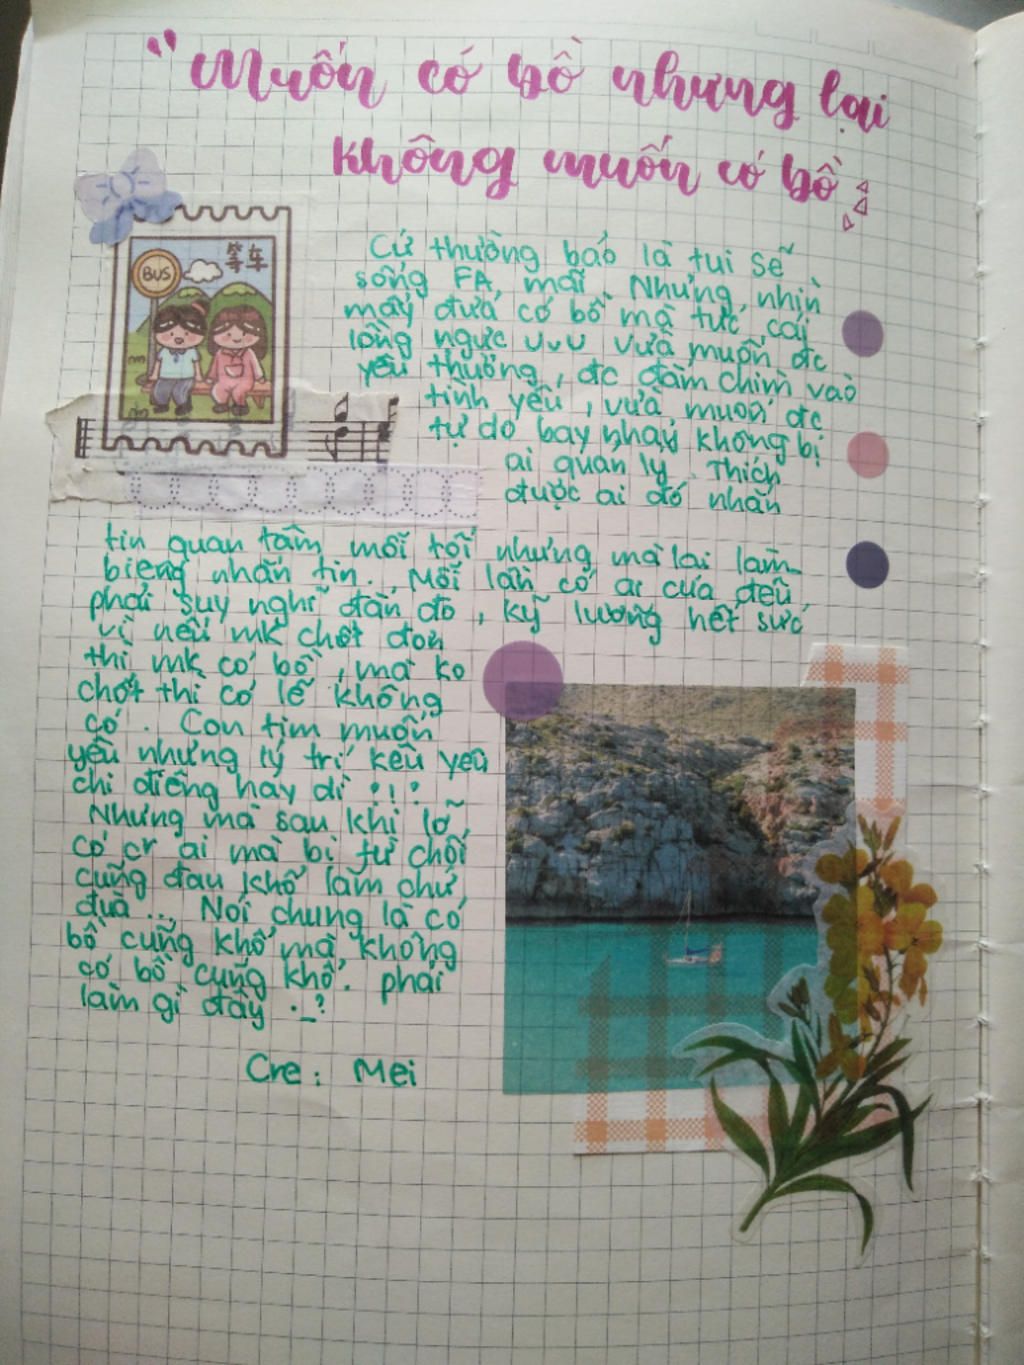 "Muốn có bồ nhưng lại
không muốn có bồ"
等车
BUS
Cứ thường bảo là tui sẽ
sống FA mãi. Nhưng nhìn
mấy đứa có bồ mà tức cái
lồng ngực UvU vừa muốn đc
yêu thương, đc đắm chìm vào
tình yêu, vừa muốn đc
tự do bay nhảy không bị
ai quản lý. Thích
được ai đó nhắn
tin quan tâm mỗi tối nhưng mà lại làm
biếng nhắn tin. Mỗi lần có ai cưa đều
phải suy nghĩ đắn đo, kỹ lương hết sức
vì nếu mk chốt đơn
thì mk có bồ, mà ko
chốt thì có lẽ không
có. Con tim muốn
yêu nhưng lý trí kêu yêu
chi điêng hay dì !!?
Nhưng mà sau khi lỡ
có cr ai mà bị từ chối
cũng đau khổ lắm chứ
đùa... Nói chung là có
bồ cũng khổ mà không
có bồ cũng khổ. phải
làm gì đây ._?
Cre: Mei